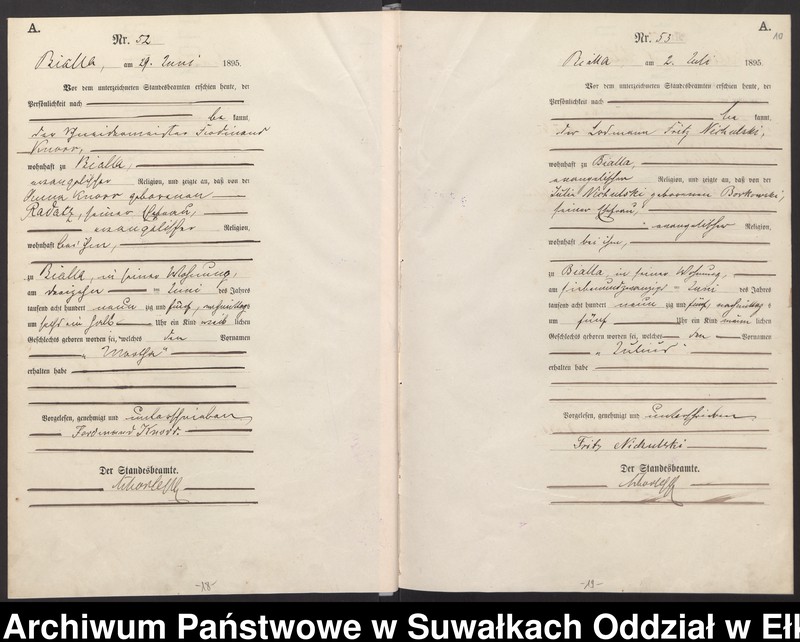 A.
Nr. 52
Bialla, am 29. Juni 1895.
Vor dem unterzeichneten Standesbeamten erschien heute, der
Persönlichkeit nach
be kannt,
der Schneidermeister Ferdinand
Knorr,
wohnhaft zu Bialla,
evangelischer Religion, und zeigte an, daß von der
Knorr geborenen
Radatz, seiner Ehefrau,
evangelischer Religion,
wohnhaft bei ihm,
zu Bialla, in seiner Wohnung,
am dreizehn ten Juni des Jahres
tausend acht hundert neun zig und fünf, nachmittags
um halb Uhr ein Kind weib lichen
Geschlechts geboren worden sei, welches den Vornamen
"Martha"
erhalten habe
Vorgelesen, genehmigt und unterschrieben
Ferdinand Knorr.
Der Standesbeamte.
-18-
A.
10
Nr. 53
Bialla am 2. Juli 1895.
Vor dem unterzeichneten Standesbeamten erschien heute, der
Persönlichkeit nach
be kannt,
der Losmann Fritz Nichulski,
wohnhaft zu Bialla,
evangelischen Religion, und zeigte an, daß von der
Julie Nichulski geborenen Borkowski,
seiner Ehefrau,
evangelischer Religion,
wohnhaft bei ihm,
zu Bialla, in seiner Wohnung,
am siebenundzwanzig ten Juni des Jahres
tausend acht hundert neun zig und fünf, nachmittag s
um fünf Uhr ein Kind männ lichen
Geschlechts geboren worden sei, welches den Vornamen
"Julius"
erhalten habe
Vorgelesen, genehmigt und unterschrieben
Fritz Nichulski
Der Standesbeamte.
-19-
Archiwum Państwowe w Suwałkach Oddział w Ełk